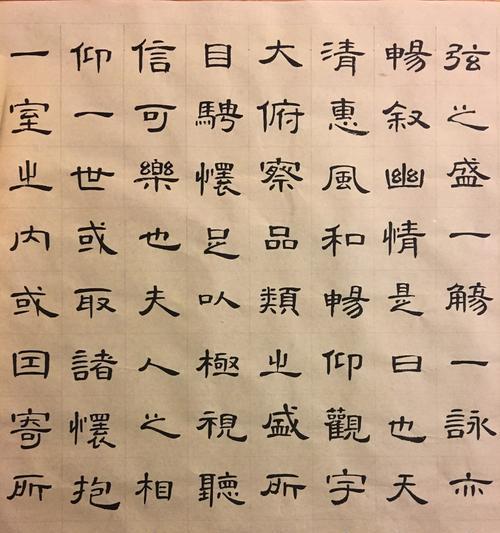 弦之盛一觴一詠亦
暢叙幽情是日也天
清惠風和暢仰觀宇
大俯察品類之盛所
目騁懷足以極視聽
信可樂也夫人之相
仰一世或取諸懷抱
一室之内或因寄所